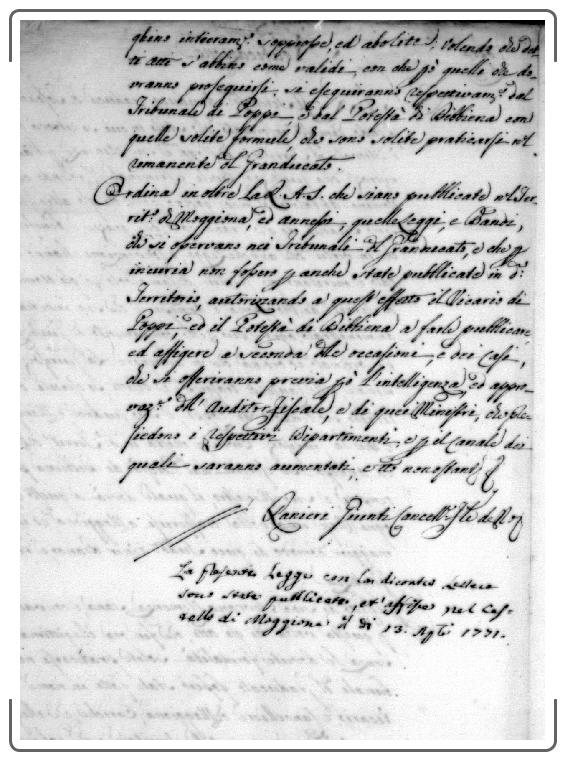 ghino interam.e soppresse, ed abolite; Volendo che det-
ti atti s'abbino come validi, con che p.ò quelle che do-
vranno proseguirsi, si eseguiranno respettivam.e dal
Tribunale di Poppi, e dal Potestà di Bibbiena con
quelle solite formule che sono solite praticarsi n'l
rimanente d'l Granducato.
Ordina in oltre La R. A. S. che siano pubblicate n'l Ter-
rit.o di Moggiona, ed annessi, quelle Leggi, e Bandi,
che si osservano nei Tribunali d'l Granducato, e che p
incuria non fossero p anche state pubblicate in d.o
Territorio, autorizzando a quest'effetto il Vicario di
Poppi, ed il Potestà di Bibbiena a farle pubblicare
ed affigere a seconda d'lle occasioni, e dei casi,
che si offeriranno previa p.ò l'intelligenza, ed appro-
vaz.e d'll'Auditor Fiscale, e di quei Ministri, che ple-
siedono i respettivi Dipartimenti, e p il canale dei
quali saranno aumentati, e tto non ostant
Ranieri Giunti Cancell.e
La presente Legge con la dicontro Lettera
sono state pubblicate, et affisse nel Cas-
tello di Moggiona il dì 13. Agto 1771.